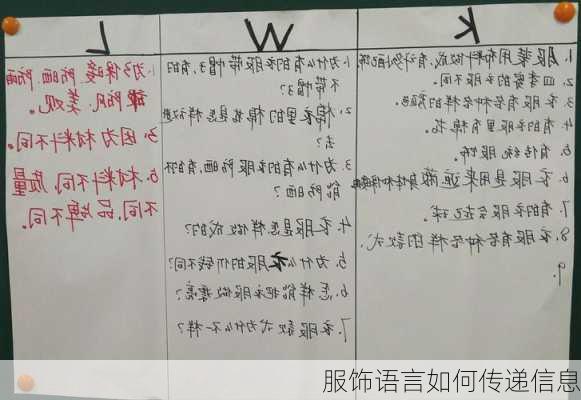 K
1. 服装用布料做成,有许多搭配
2. 四季穿的衣服不同。
3. 衣服有各种各样的颜色。
4. 有的衣服里有棉花。
5. 有传统服饰。
6. 衣服是用来遮蔽身体和保暖
7. 有的衣服会起球。
8. 衣服有各种各样的款式.
9.
W
1. 为什么有的衣服带帽子,有的
不带帽子?
2. 棉衣里的棉花是怎样放进
去?
3. 为什么有的衣服防晒,有的不
能防晒?
4. 衣服是怎样做成的?
5. 为什么衣服的价钱不同?
6. 怎样能把衣服做漂亮?
7. 衣服款式为什么不一样?
L
1. 为了保暖 防晒 防雨
防风、
美观。
3. 因为材料不同。
5. 材料不同,质量
不同,品牌不同。
服饰语言如何传递信息